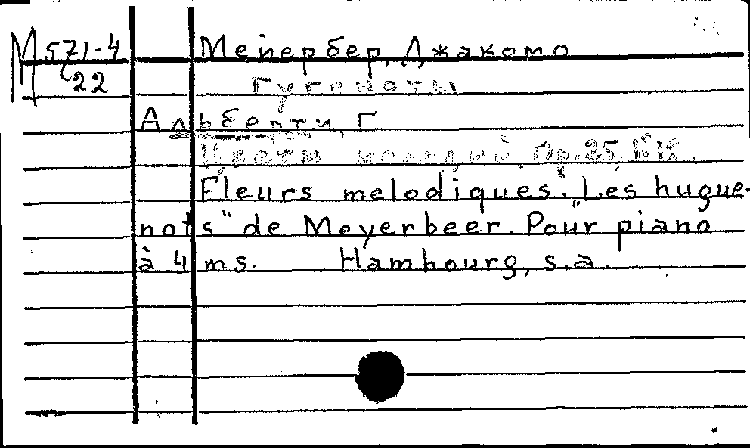 М 571-4
22
Мейербер, Джакомо
Гугеноты
Альберти, Г
Цветы мелодий. Op. 25,
Fleurs melodiques. "Les hugue-
nots" de Meyerbeer. Pour piano
à 4 ms. Hambourg, s.a.